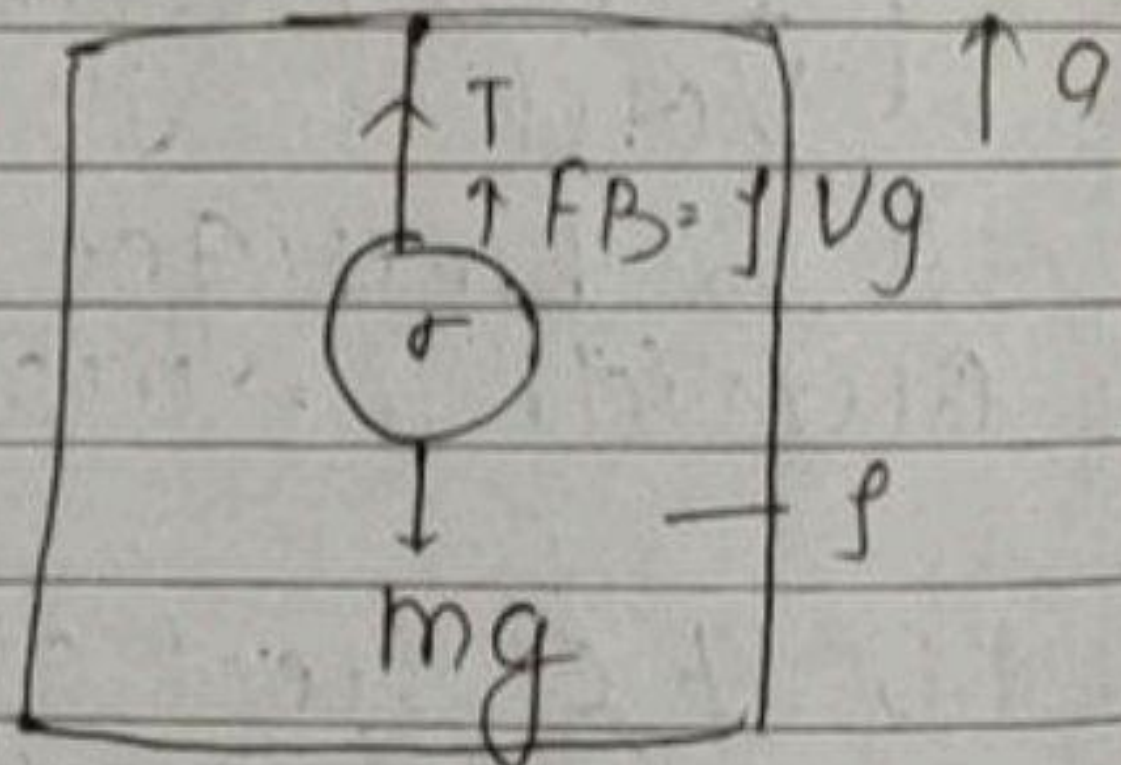 ↑ a
T
↑ FB = ρVg
σ
ρ
mg